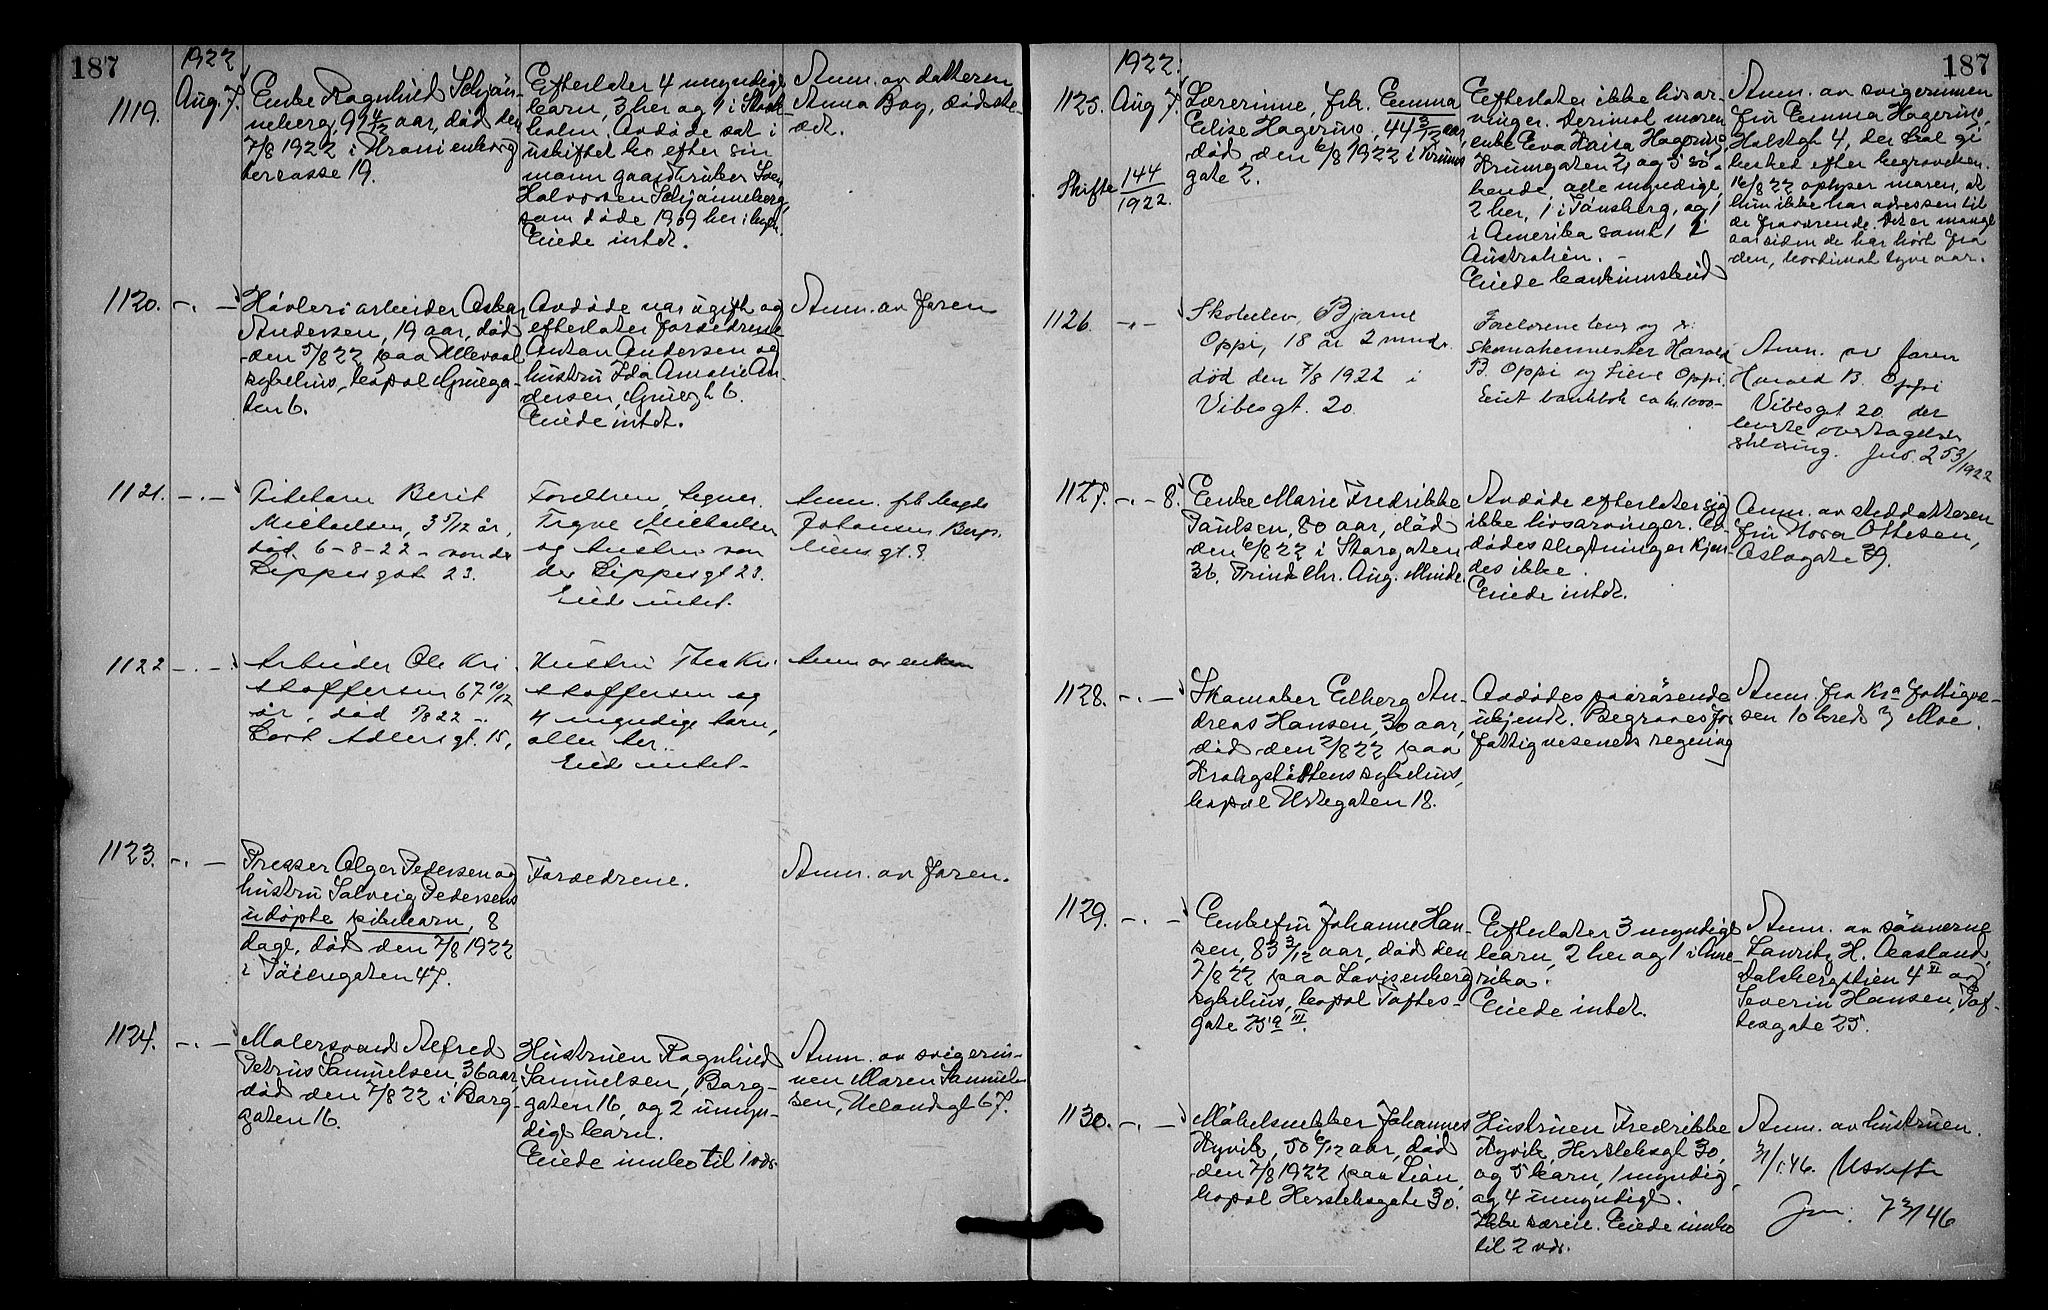 187
1922
1119.
Aug. 7.
Enke Ragnhild Schjön-
neberg, 99 4/12 aar, død den
7/8 1922 i Uranienborg
terrasse 19.
Efterlater 4 myndige
barn, 3 her og 1 i Stock-
holm. Avdøde sat i
uskiftet bo efter sin
mann gaardbruker
Halvorsen Schjönneberg,
som døde 1909 her i byen.
Eiede intet.
Anm. av datteren
Anna Boy, sødste-
det.
1120. -.-
Høvleriarbeider Oskar
Andersen, 19 aar, død
den 5/8 22 paa Ullevaal
sykehus, bopæl Grüega-
ten 6.
Avdøde var ugift og
efterlater forældrene
Anton Andersen og
hustru Ida Amalie An-
dersen, Grüegt 6.
Eiede intet.
Anm. av faren
1121. -.-
Pikebarn Berit
Michaelsen, 3 5/12 år,
død 6-8-22 - von der
Lippesgate 23.
Foreldrene,
Trygve Michaelsen
og hustru von
der Lippesgt 23.
Eied intet.
Anm. frk Magda
Johansen, Berg-
liensgt.
1122 -.-
Arbeider Ole Kri
stoffersen 67 10/12
år, død 5/8 22 -.
Cort Adlersgt. 15,
Hustru Thea Kri
stoffersen og
4 myndige barn,
alle her.
Eied intet.
Anm av enken
1123. -.-
Presser Olger Pedersen og
hustru Solveig Pedersens
udøpte pikebarn, 8
dage, død den 7/8 1922
i Töiengaten 47.
Forældrene.
Anm. av faren.
1124. -.-
Malersvend Alfred
Petrus Samuelsen, 36 aar,
død den 7/8 22 i Borg-
gaten 16.
Hustruen Ragnhild
Samuelsen, Borg-
gaten 16, og 2 umyn-
dige barn.
Eiede innbo til 1 vær.
Anm. av svigerin-
nen Maren Samuel-
sen, Uelandsgt 67.
187
1922.
1125. Aug 7.
Skifte 144/1922.
Lærerinne, frk. Emma
Elise Hagerino, 44 3/12 aar,
død den 6/8 1922 i Krums
gate 2.
Efterlater ikke livsar-
vinger. Derimot moren
enke Eva Kaisa Hagerino
Krumgaten 2, og 5 sø-
kende, alle myndige,
2 her, 1 i Tønsberg, og 1
i Amerika samt 1 i
Australien. -
Eiede bankinnskud
Anm. av svigerinnen
fru Emma Hagerino,
Holstgt 4, der skal gi
besked efter begravelsen.
16/8 22 oplyser moren, at
hun ikke har adressen til
de fraværende. Det er mange
aar siden de har hørt fra
dem, bortimot tyve aar.
1126. -.-
Skoleelev, Bjarne
Oppi, 18 år 2 mndr.
død den 7/8 1922 i
Vibesgt. 20.
Foreldrene lever og er:
skomakermester Harald
B. Oppi og Oppi.
Eiet bankbok ca kr. 1000-
Anm. av faren
Harald B. Oppi
Vibesgt 20. der
leverte overtagelses
erklæring. Jno. 253/1922
1127. -.- 8.
Enke Marie Fredrikke
Paulsen, 80 aar, død
den 6/8 22 i Storgaten
36, Prinds Chr. Aug. Minde.
Avdøde efterlater sig
ikke livsarvinger. Av-
dødes slegtninger kjen-
des ikke.
Eiede intet.
Anm. av steddatteren
fru Nora Ottesen,
Oslogate 39.
1128. -.-
Skomaker Elberg An-
dreas Hansen, 30 aar,
død den 2/8 22 paa
Krohgstöttens sykehus,
bopæl Urtegaten 18.
Avdødes paarørende
ukjendt. Begraves for
fattigvesenets regning
Anm. fra Kra fattigve-
sen 10 kreds v/ Moe.
1129. -.-
Enkefru Johanne Han-
sen, 83 3/12 aar, død den
7/8 22 paa Lovisenberg
sykehus, bopæl Toftes-
gate 25 a III.
Efterlater 3 myndige
barn, 2 her og 1 i Ame-
rika.
Eiede intet.
Anm. av sönnerne
Lauritz H. Aasland,
Dalsbergstien 4 VI og
Severin Hansen, Tof-
tesgate 25.
1130. -.-
Møbelsnekker Johannes
Kyvik, 50 6/12 aar, død
den 7/8 1922 paa Lian,
bopæl Herslebsgate 30.
Hustruen Fredrikke
Kyvik, Herslebsgt 30,
og 5 barn, 1 myndig
og 4 umyndige.
Ikke særeie. Eiede innbo
til 2 vær.
Anm. av hustruen.
3/1.46. Uskifte
Jno. 73/46